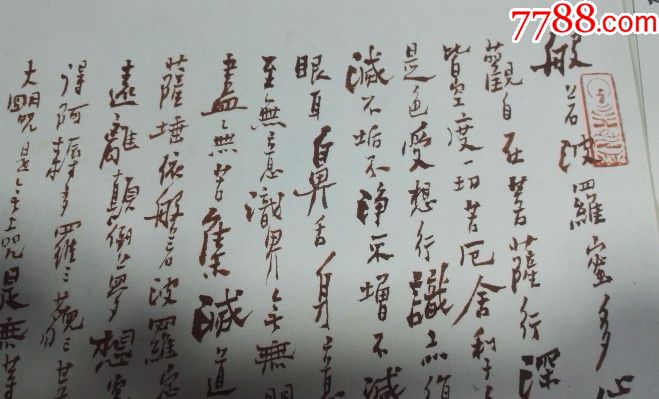 7788.com
般若波羅蜜多心
觀自在菩薩行深
皆空度一切苦厄舍利子
是色受想行識亦復
減不垢不淨不增不減
眼耳鼻舌身意
至無意識界無無明
盡無苦集滅道
薩埵依般若波羅蜜
遠離顛倒夢想究
得阿耨多羅三藐三菩
大明咒是無上咒是無等